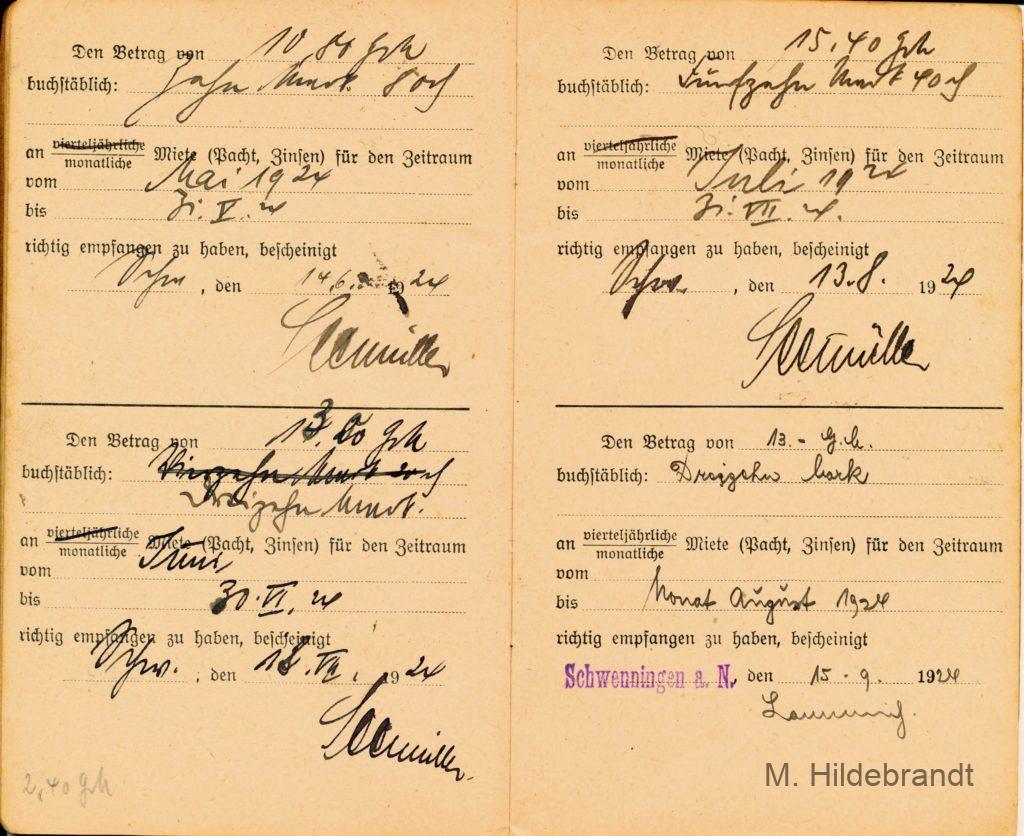 Den Betrag von 10,80 Gmk
buchstäblich: Zehn Mark 80 ch
an vierteljährliche
monatliche Miete (Pacht, Zinsen) für den Zeitraum
vom Mai 1924
bis 31. V. 24
richtig empfangen zu haben, bescheinigt
Schw , den 14.6. 1924
Seemüller
Den Betrag von 13.00 Gmk
buchstäblich: Vierzehn Mark
Dreizehn Mark.
an vierteljährliche
monatliche Miete (Pacht, Zinsen) für den Zeitraum
vom Juni
bis 30. VI. 24
richtig empfangen zu haben, bescheinigt
Schw. , den VII. 1924
Seemüller
2,40 Gmk
Den Betrag von 15,40 Gmk
buchstäblich: Fünfzehn Mark 40 ch
an vierteljährliche
monatliche Miete (Pacht, Zinsen) für den Zeitraum
vom Juli 1924
bis 31. VII. 24.
richtig empfangen zu haben, bescheinigt
Schw. , den 13.8. 1924
Seemüller
Den Betrag von 13.- G.M.
buchstäblich: Dreizehn Mark
an vierteljährliche
monatliche Miete (Pacht, Zinsen) für den Zeitraum
vom
bis Monat August 1924
richtig empfangen zu haben, bescheinigt
Schwenningen a. N. , den 15.9. 1924
M. Hildebrandt